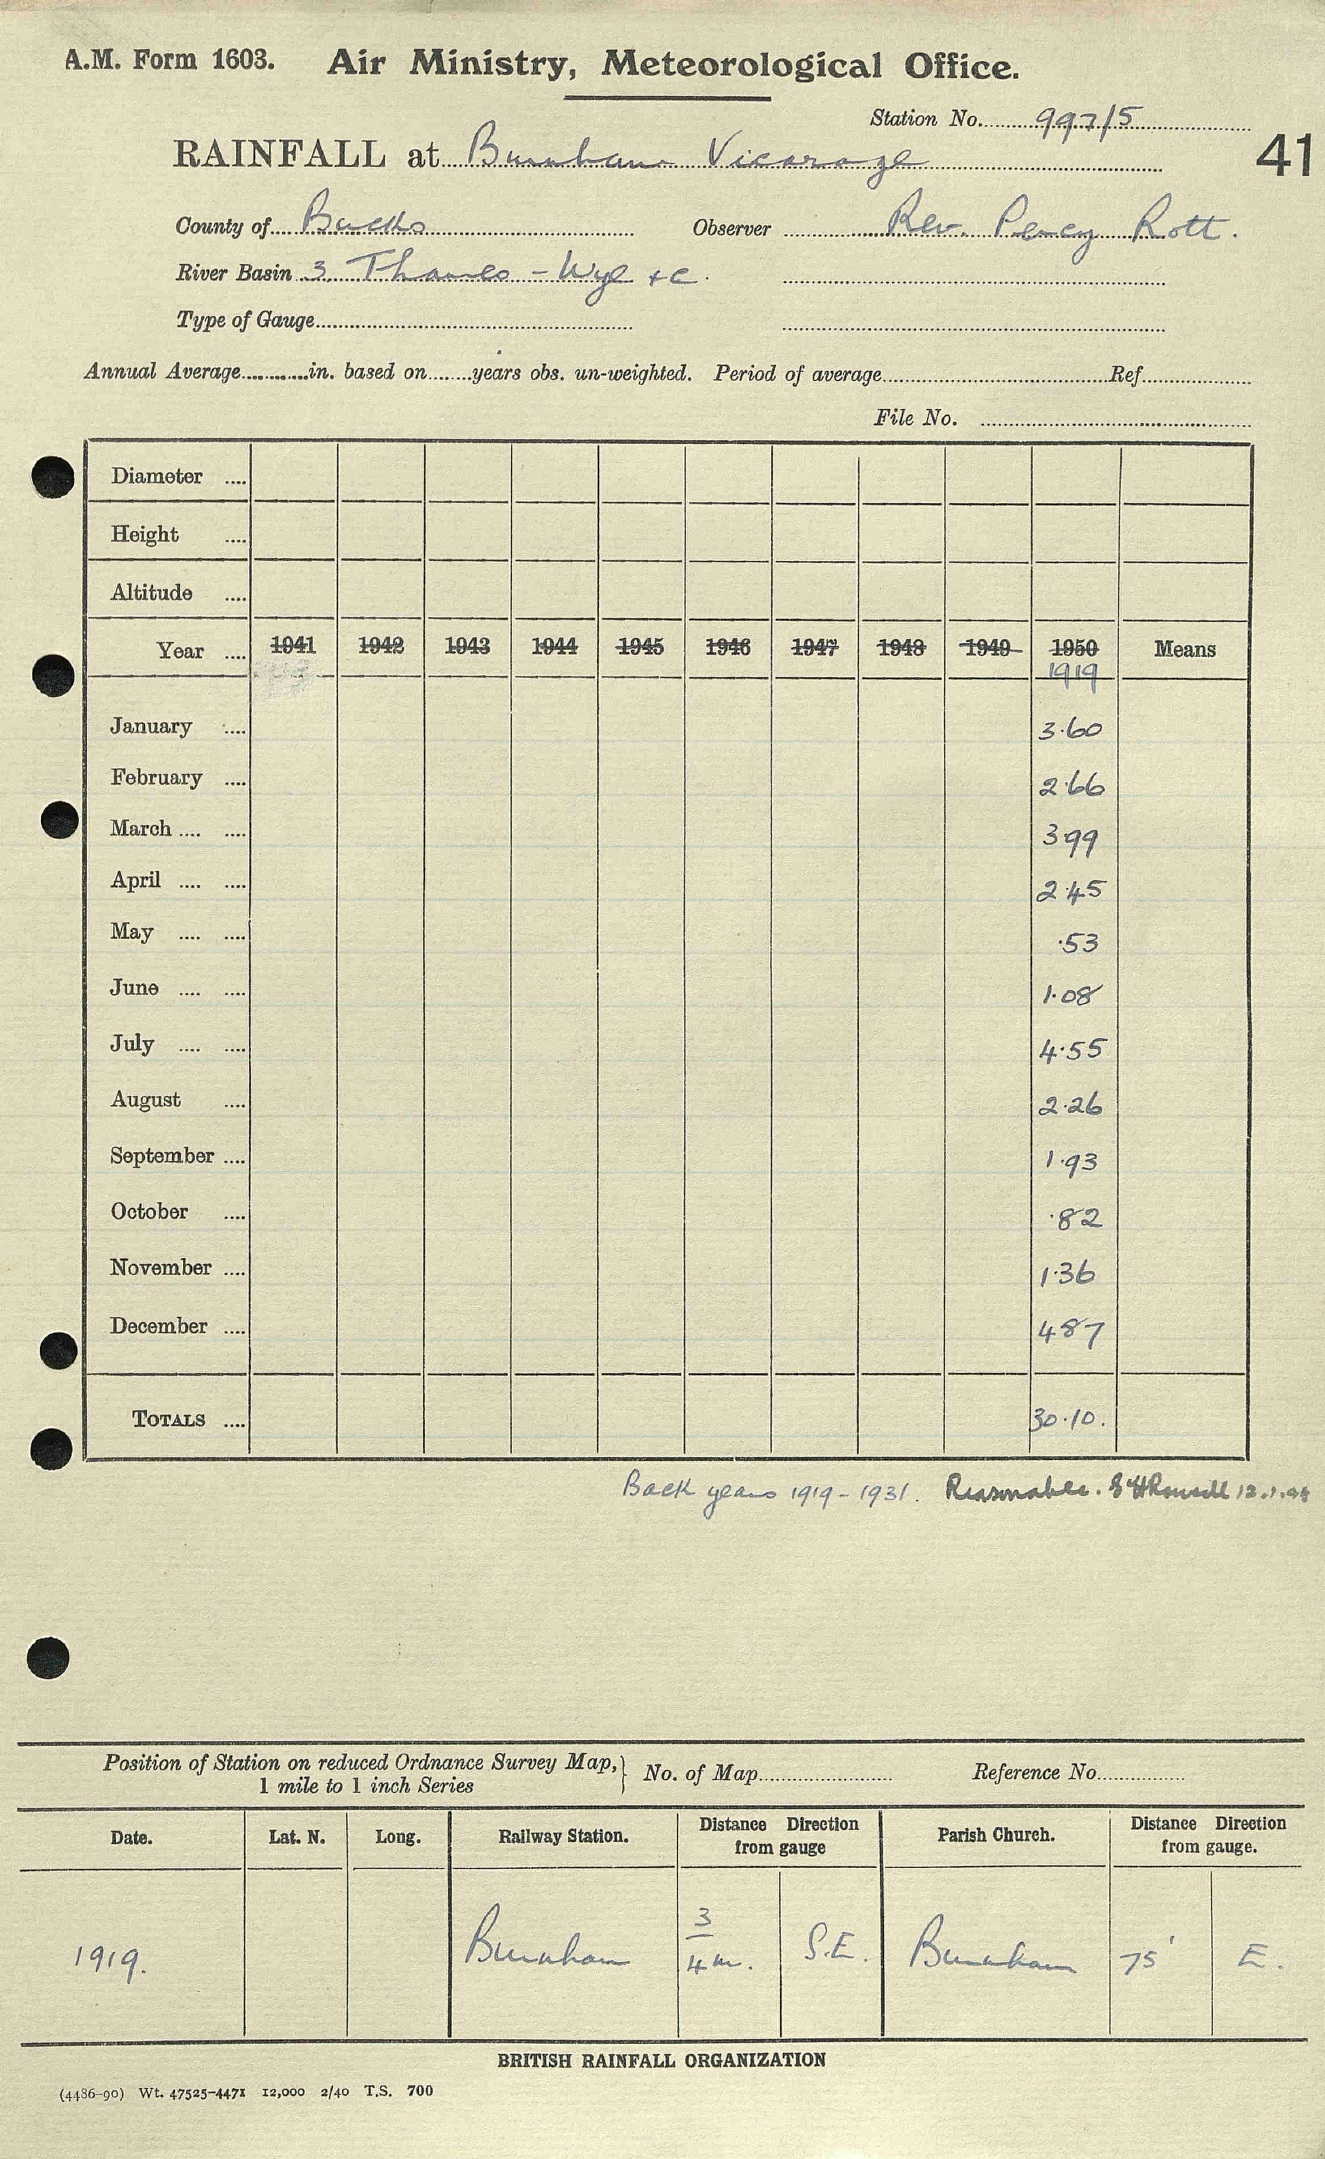 A.M. Form 1603. Air Ministry, Meteorological Office.
Station No. 997/5
RAINFALL at Burnham Vicarage
41
County of Bucks Observer Rev. Percy Rott.
River Basin 3. Thames - Wye &c.
Type of Gauge
Annual Average in. based on years obs. un-weighted. Period of average Ref
File No.
Diameter
Height
Altitude
Year 1941 1942 1943 1944 1945 1946 1947 1948 1949 1950 Means
1919
January 3.60
February 2.66
March 3.99
April 2.45
May .53
June 1.08
July 4.55
August 2.26
September 1.93
October .82
November 1.36
December 4.87
TOTALS 30.10.
Back years 1919-1931. Reasonable.
Position of Station on reduced Ordnance Survey Map, No. of Map Reference No.
1 mile to 1 inch Series
Date. Lat. N. Long. Railway Station. Distance Direction from gauge Parish Church. Distance Direction from gauge.
1919. Burnham 3/4 m. S.E. Burnham 75' E.
BRITISH RAINFALL ORGANIZATION
(4486-90) Wt. 47525-4471 12,000 2/40 T.S. 700